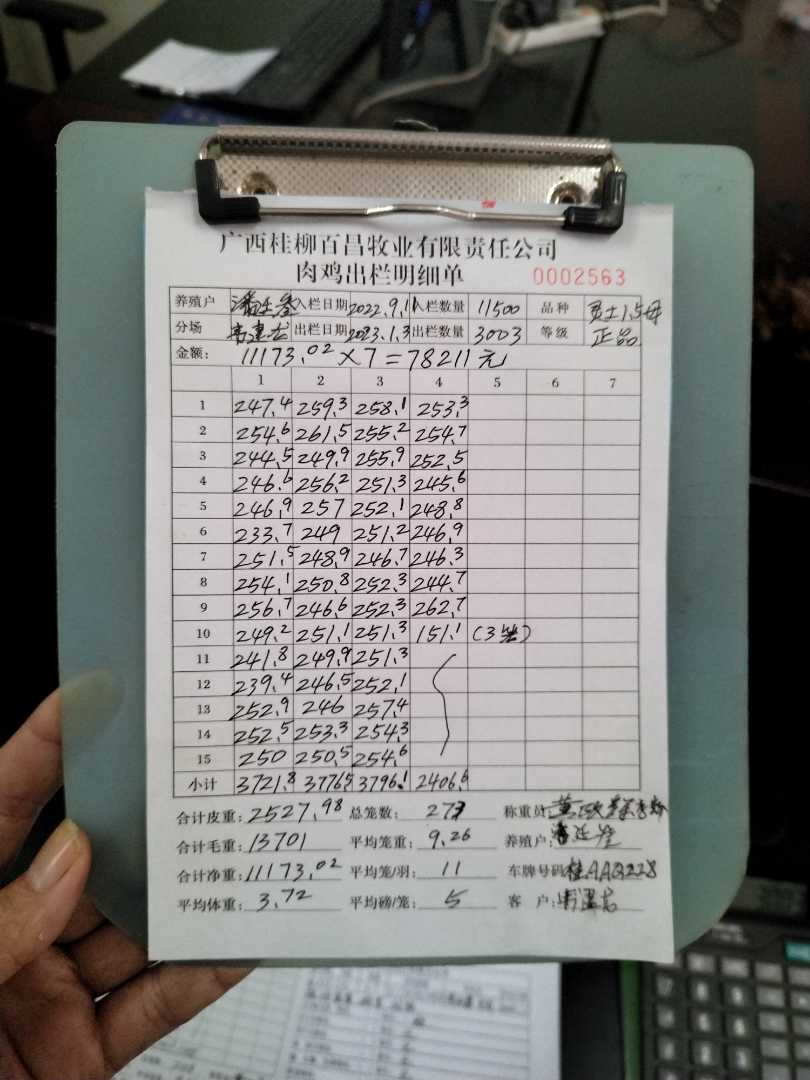 广西桂柳百昌牧业有限责任公司
肉鸡出栏明细单 0002563
养殖户 入栏日期 2022.9.1 入栏数量 11500 品种
分场 出栏日期 2023.1.3 出栏数量 3003 等级 正品
金额: 11173.02×7=78211元
1 2 3 4 5 6 7
1 247.4 259.3 258.1 253.3
2 254.6 261.5 255.2 254.7
3 244.5 249.9 255.9 252.5
4 246.6 256.2 251.3 245.6
5 246.9 257 252.1 248.8
6 233.7 249 251.2 246.9
7 251.5 248.9 246.7 246.3
8 254.1 250.8 252.3 244.7
9 256.7 246.6 252.3 262.7
10 249.2 251.1 251.3 151.1 (3笼)
11 241.8 249.9 251.3
12 239.4 246.5 252.1
13 252.9 246 257.4
14 252.5 253.3 254.3
15 250 250.5 254.6
小计 3721.8 3776.5 3796.1 2406.6
合计皮重: 2527.98 总笼数: 273 称重员:
合计毛重: 13701 平均笼重: 9.26 养殖户:
合计净重: 11173.02 平均笼/羽: 11 车牌号码: 桂AAQ228
平均体重: 3.72 平均磅/笼: 5 客户: